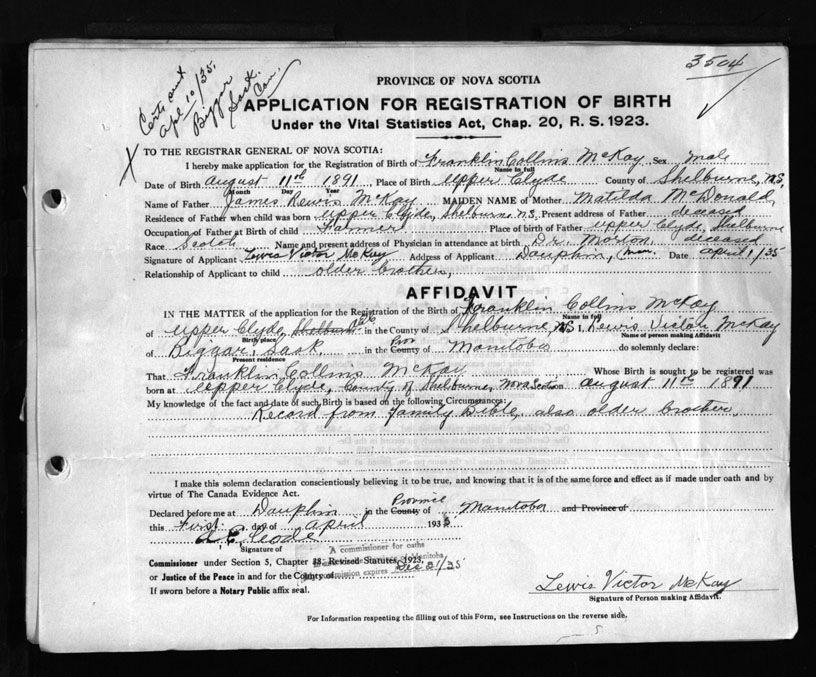 3504
Certs sent
Apl 10/35.
Biggar
Sask.
Can.
PROVINCE OF NOVA SCOTIA
APPLICATION FOR REGISTRATION OF BIRTH
Under the Vital Statistics Act, Chap. 20, R. S. 1923.
X TO THE REGISTRAR GENERAL OF NOVA SCOTIA:
I hereby make application for the Registration of Birth of Franklin Collins McKay Sex male
Name in full
Date of Birth August 11th 1891, Place of Birth Upper Clyde County of Shelburne, N.S,
Month Day Year
Name of Father James Lewis McKay MAIDEN NAME of Mother Matilda McDonald,
Residence of Father when child was born Upper Clyde, Shelburne N.S. Present address of Father deceased
Occupation of Father at Birth of child Farmer Place of birth of Father Upper Clyde, Shelburne
Race Scotch Name and present address of Physician in attendance at birth Dr. Morton, deceased
Signature of Applicant Lewis Victor McKay Address of Applicant Dauphin, Man. Date April 1/35
Relationship of Applicant to child older brother,
AFFIDAVIT
IN THE MATTER of the application for the Registration of the Birth of Franklin Collins McKay
Name in full
of Upper Clyde, in the County of Shelburne, NS I, Lewis Victor McKay
Birth place Name of person making Affidavit
of Biggar, Sask, in the County of Manitoba do solemnly declare:
Pro
Present residence
That Franklin Collins McKay Whose Birth is sought to be registered was
born at Upper Clyde, County of Shelburne, Nova Scotia on August 11th 1891
My knowledge of the fact and date of such Birth is based on the following Circumstances:
Record from family Bible, also older brother,
I make this solemn declaration conscientiously believing it to be true, and knowing that it is of the same force and effect as if made under oath and by
virtue of The Canada Evidence Act.
Province
Declared before me at Dauphin in the County of Manitoba and Province of
this First day of April 1935
Signature of
A commissioner for oaths
Commissioner under Section 5, Chapter 38, Revised Statutes, 1923,
Manitoba
commission expires Dec 31/35
or Justice of the Peace in and for the County of
If sworn before a Notary Public affix seal.
Lewis Victor McKay
Signature of Person making Affidavit.
For Information respecting the filling out of this Form, see Instructions on the reverse side.